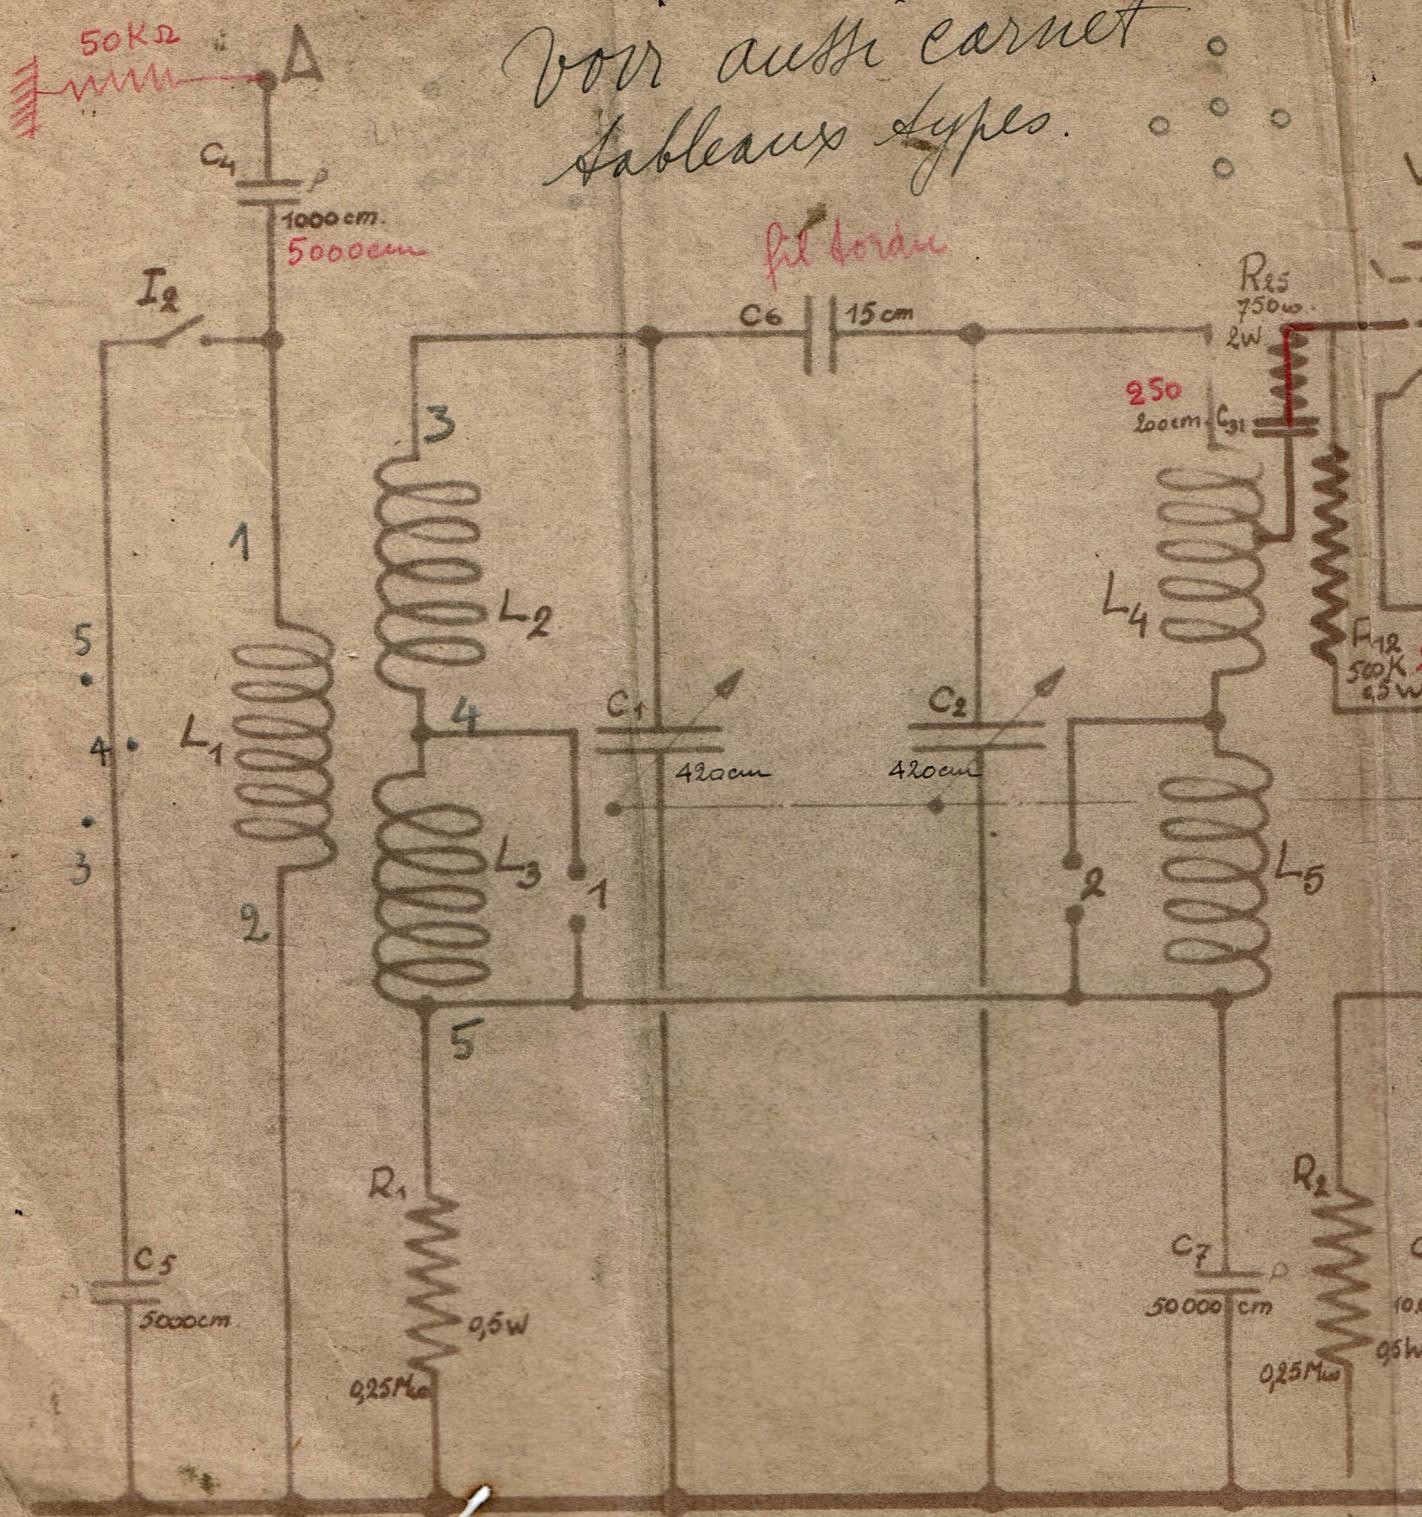 50KΩ
A
voir aussi carnet
tableaux types.
C4
P
1000cm.
5000cm
fil tordu
I2
C6
15cm
R25
750ω.
2W
250
200cm. C31
3
1
L2
L4
5
4
3
L1
R12
500K
4
C1
C2
420cm
420cm
L3
1
2
L5
2
5
R1
0,5W
0,25Mω
C5
5000cm
C7
P
50000cm
R2
0,25Mω
0,5W